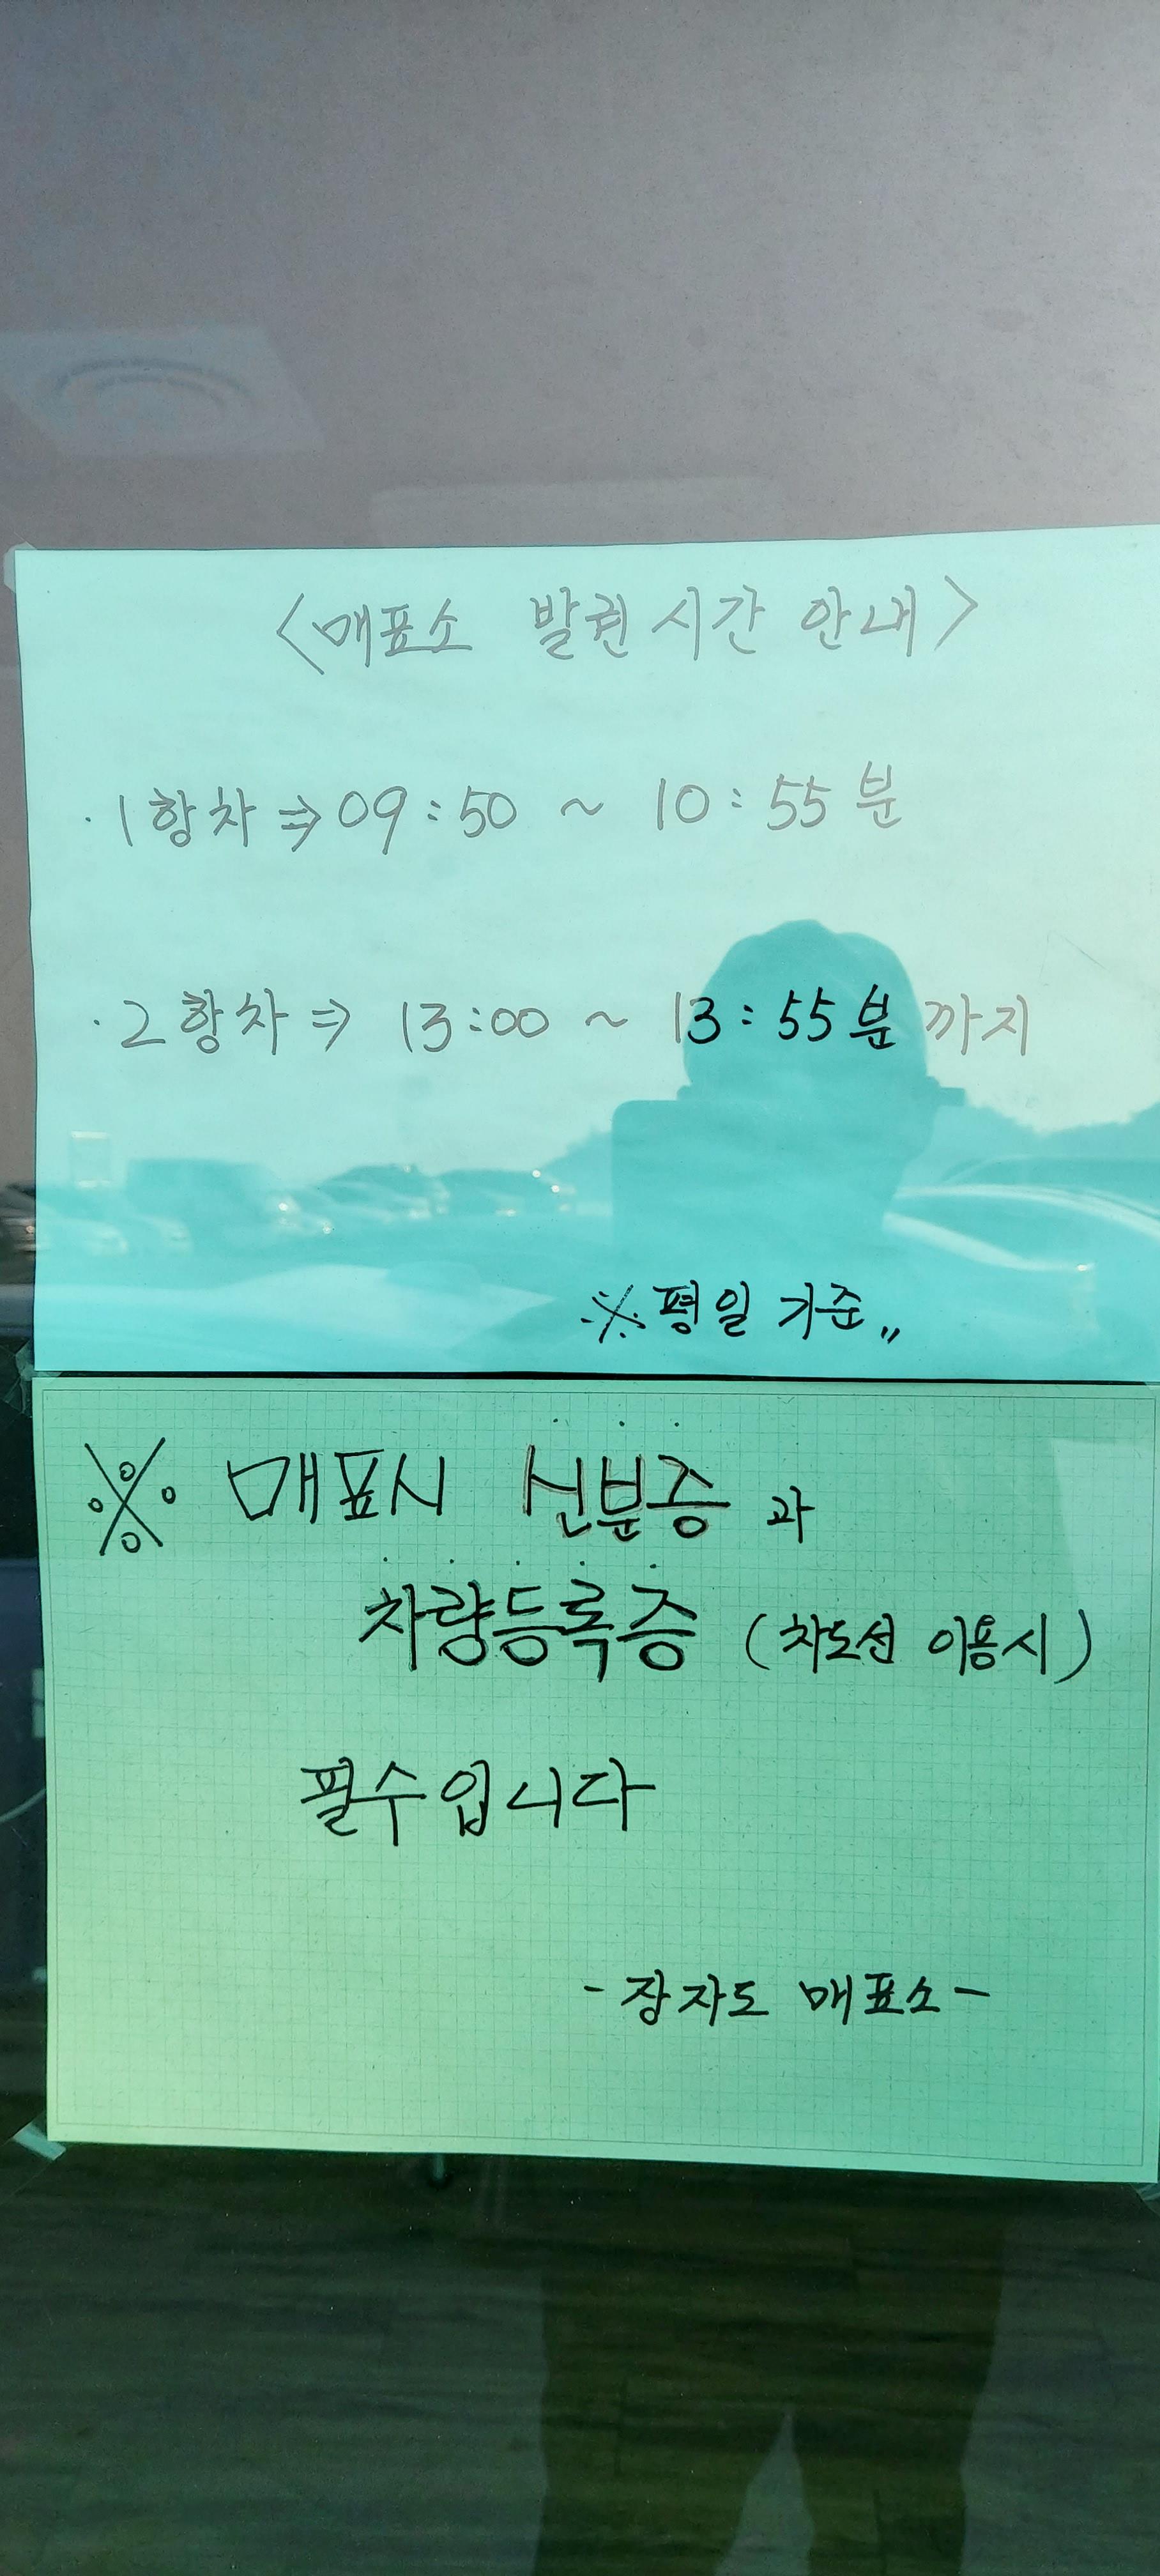 <매표소 발권 시간 안내>
· 1항차 ⇒ 09:50 ~ 10:55분
· 2항차 ⇒ 13:00 ~ 13:55분 까지
※ 평일 기준〃
※ 매표시 신분증 과
차량등록증 (차도선 이용시)
필수입니다
- 장자도 매표소 -